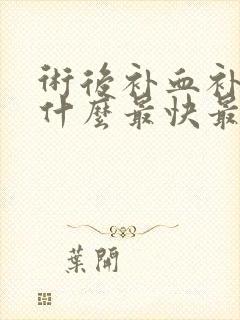 術後补血补
什麼最快最
葉開